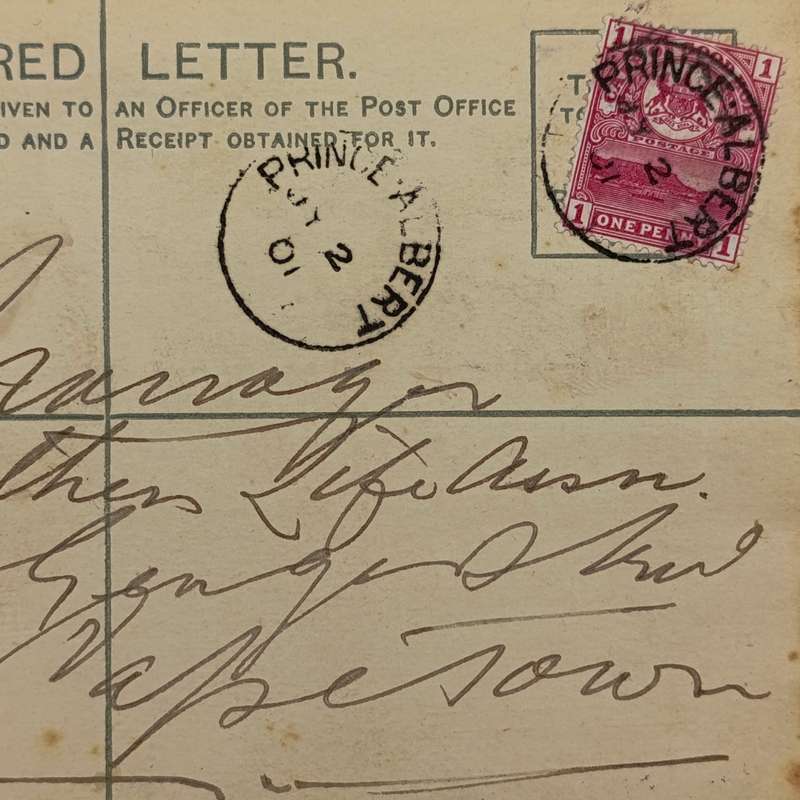 RED LETTER.
IVEN TO AN OFFICER OF THE POST OFFICE
D AND A RECEIPT OBTAINED FOR IT.
T
TO
1 1
POSTAGE
1 ONE PEN 1
PRINCE·ALBERT
JY 2
01
PRINCE·ALBERT
JY 2
01
Manager
thern Life Assn.
George Street
Capetown